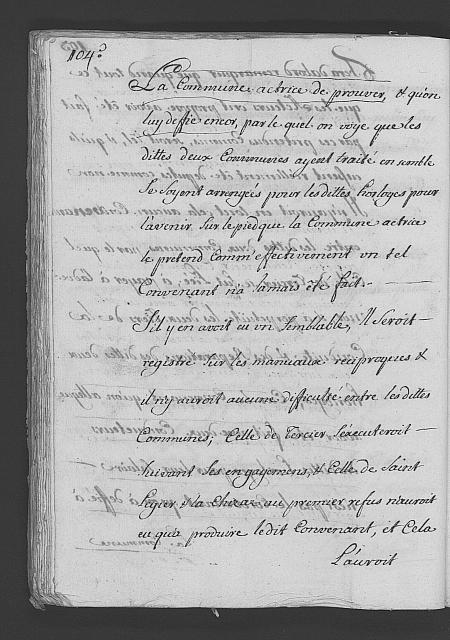 104.º
La Commune actrice de prouver, & qu'on
luy deffie encor, par le quel on voye que les
dittes deux Communes ayent traité ensemble
Se soyent arrengés pour les dittes horloges pour
l'avenir sur le pied que la Commune actrice
le pretend Comm'effectivement un tel
Convenant n'a Jamais été fait.
S'il y en avoit eu un semblable, Il seroit
registré sur les manuaux reciproques &
il n'y auroit aucune difficulté entre les dittes
Communes; Celle de Tercier l'executeroit
suivant les engagemens, & Celle de Saint
Legier & la Chesaz au premier refus n'auroit
eu qu'à produire ledit Convenant, et Cela
L'auroit